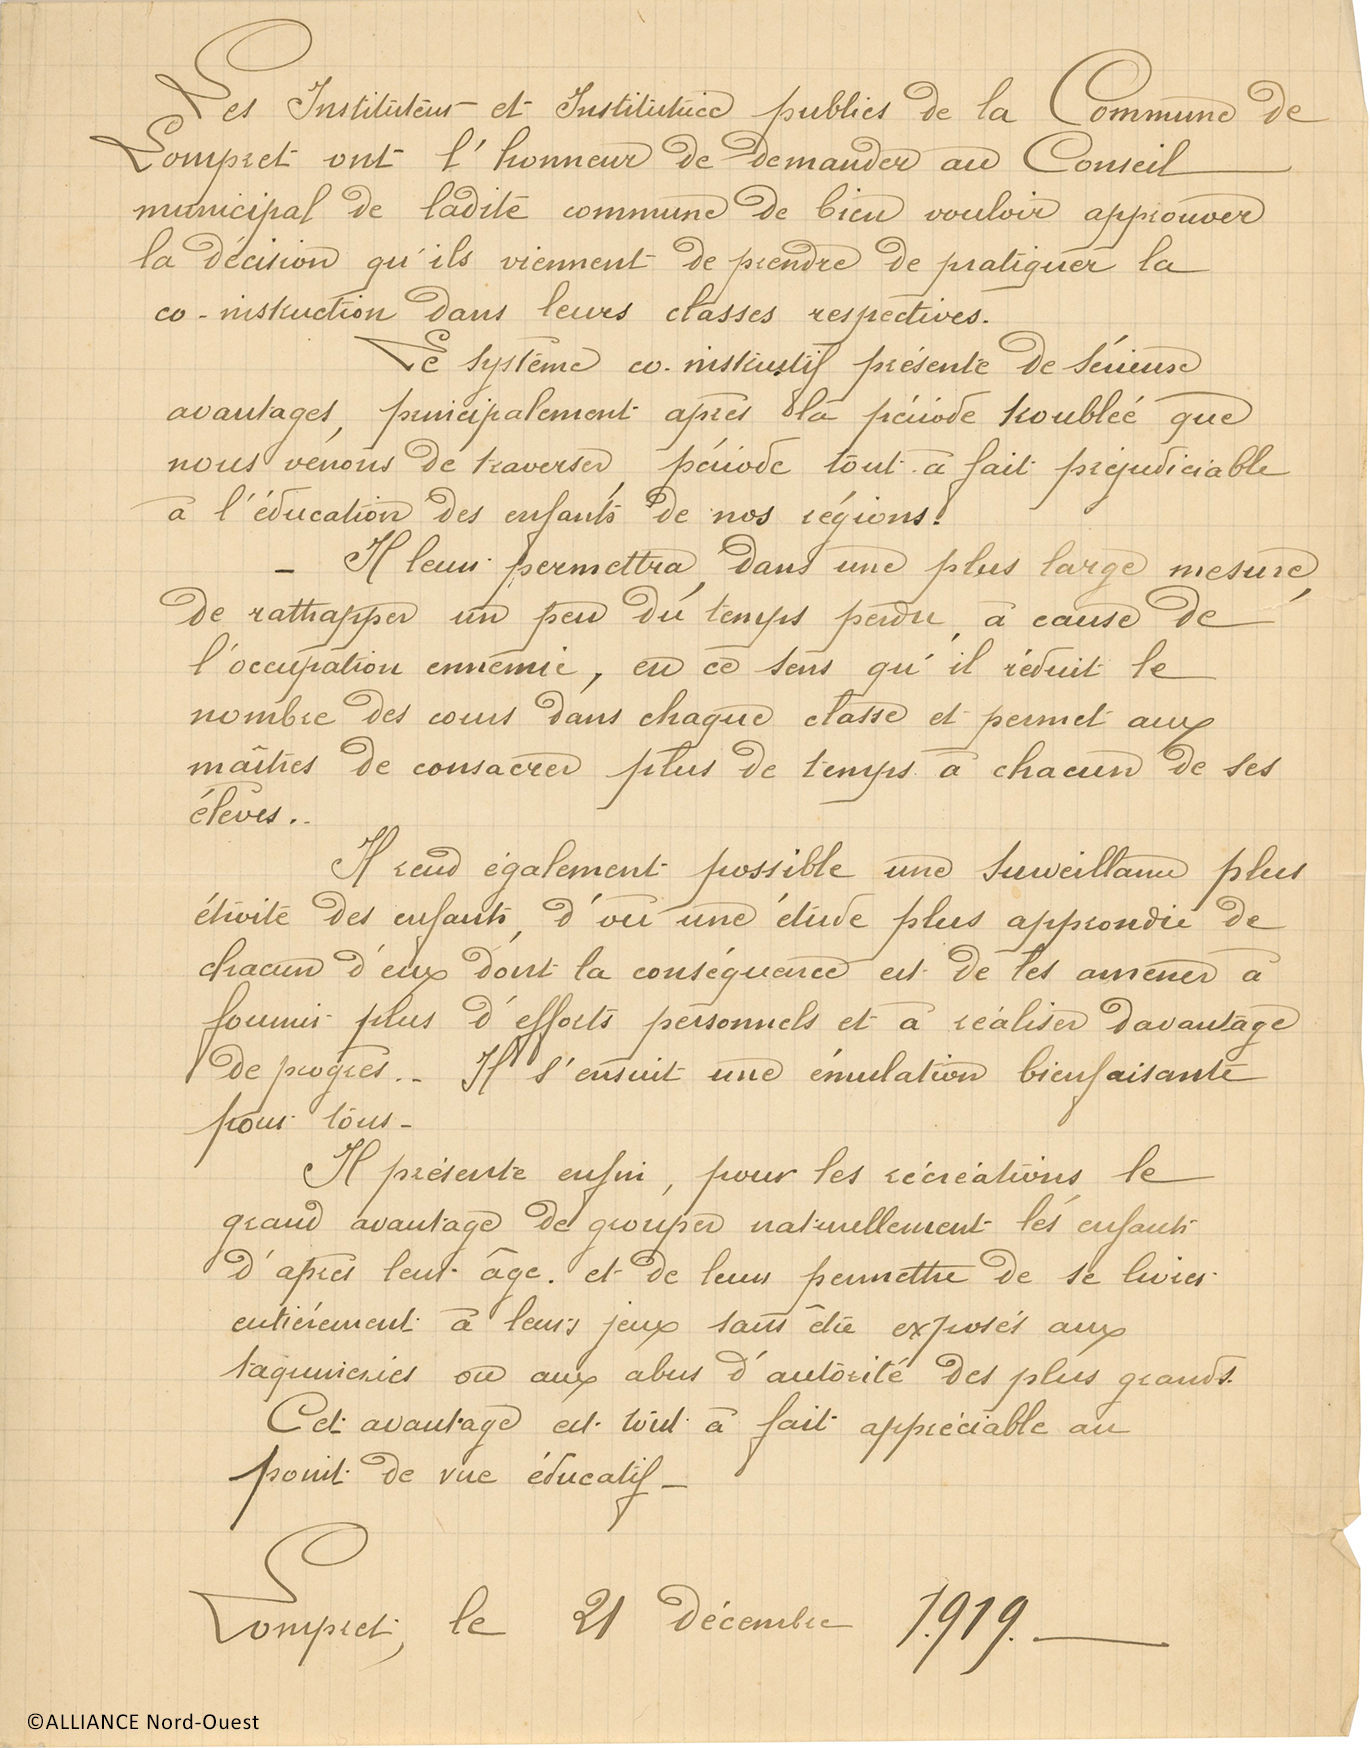 Les Instituteur et Institutrice publics de la Commune de
Lompret ont l'honneur de demander au Conseil
municipal de ladite commune de bien vouloir approuver
la décision qu'ils viennent de prendre de pratiquer la
co-instruction dans leurs classes respectives.
Le système co-instructif présente de sérieux
avantages, principalement après la période troublée que
nous venons de traverser, période tout à fait préjudiciable
à l'éducation des enfants de nos régions.
- Il leur permettra, dans une plus large mesure,
de rattrapper un peu du temps perdu, à cause de
l'occupation ennemie, en ce sens qu'il réduit le
nombre des cours dans chaque classe et permet aux
maîtres de consacrer plus de temps à chacun de ses
élèves..
Il rend également possible une surveillance plus
étroite des enfants, d'où une étude plus approndie de
chacun d'eux dont la conséquence est de les amener à
fournir plus d'efforts personnels et à réaliser davantage
de progrès.. Il s'ensuit une émulation bienfaisante
pour tous-
Il présente enfin, pour les récréations le
grand avantage de grouper naturellement les enfants
d'après leur âge. et de leur permettre de se livrer
entièrement à leurs jeux sans être exposés aux
taquineries ou aux abus d'autorité des plus grands.
Cet avantage est tout à fait appréciable au
point de vue éducatif-
Lompret, le 21 décembre 1919.
©ALLIANCE Nord-Ouest